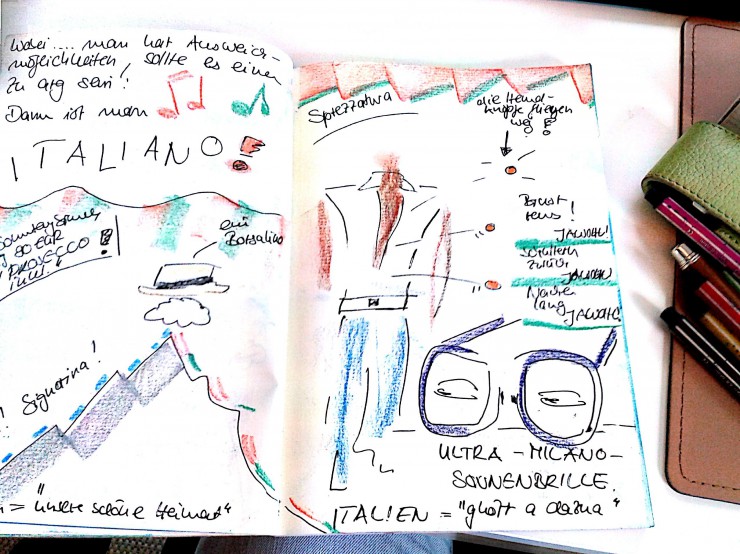 Wobei.... man hat Ausweich-
möglichkeiten, sollte es einem
zu arg sein!
Dann ist man
ITALIANO!
80 EUR
PROSECCO
inkl.!
ein
Borsalino
! Signorina!
= "unsere schöne Heimat"
Sprezzatura
die Hemd-
knöpfe fliegen
weg!
Brust
raus!
JAWOHL!
Schultern
zurück
JAWOHL!
Nacken
lang
JAWOHL!
ULTRA-MILANO-
SONNENBRILLE.
ITALIEN = "ghört a dazua"